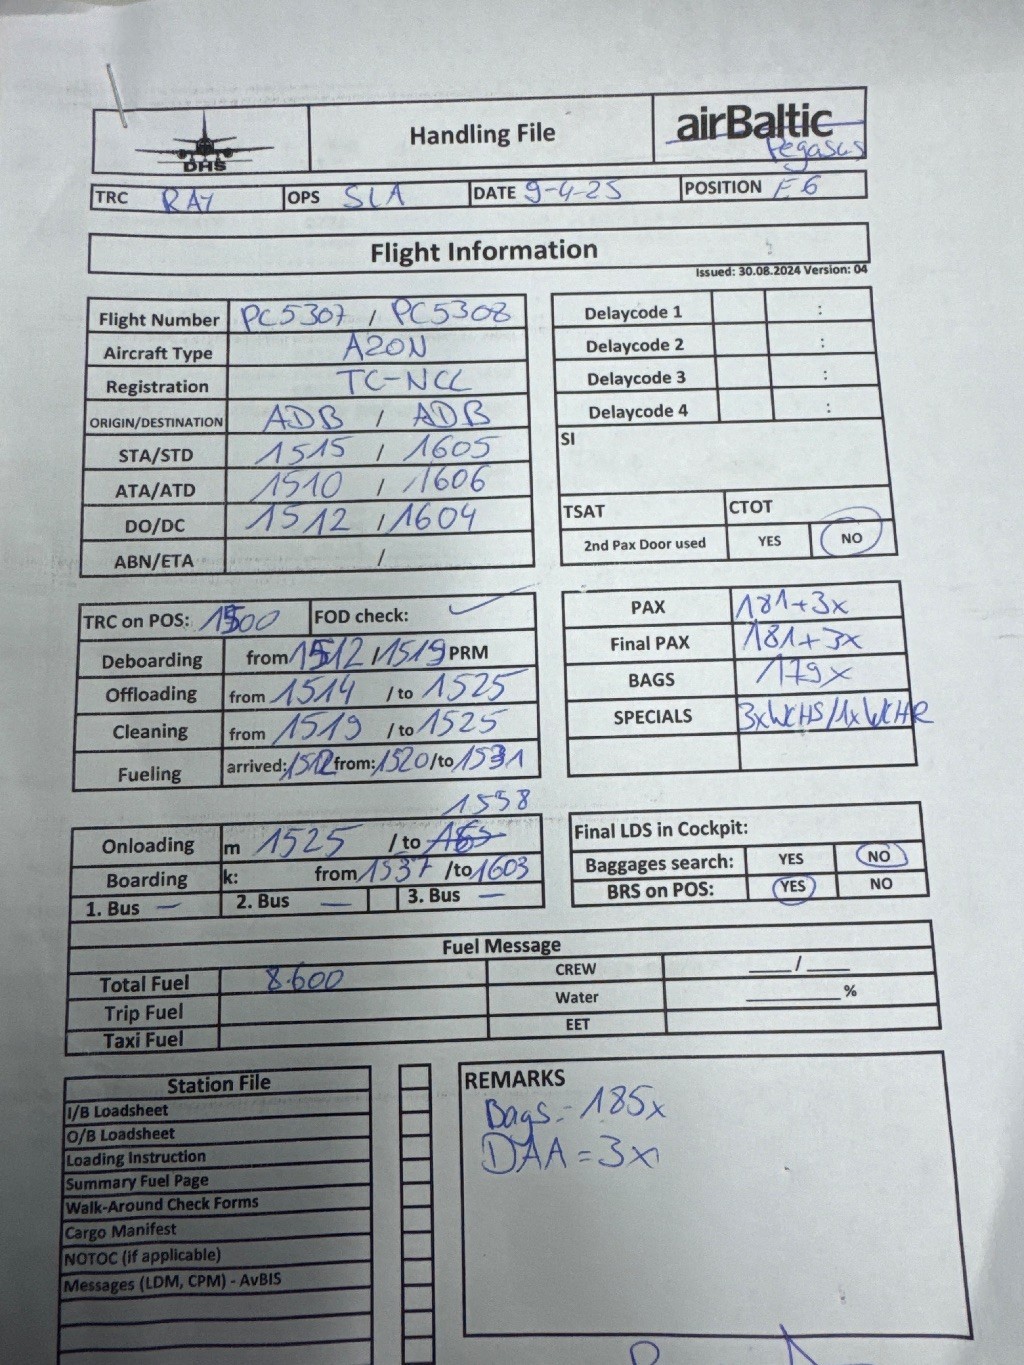 DHS
Handling File
airBaltic
Pegasus
TRC RAY OPS SLA DATE 9-4-25 POSITION E6
Flight Information
Issued: 30.08.2024 Version: 04
Flight Number PC5307 / PC5308
Aircraft Type A20N
Registration TC-NCL
ORIGIN/DESTINATION ADB / ADB
STA/STD 1515 / 1605
ATA/ATD 1510 / 1606
DO/DC 1512 / 1604
ABN/ETA /
Delaycode 1 :
Delaycode 2 :
Delaycode 3 :
Delaycode 4 :
SI
TSAT CTOT
2nd Pax Door used YES NO
TRC on POS: 1500 FOD check:
Deboarding from 1512 / 1519 PRM
Offloading from 1514 / to 1525
Cleaning from 1519 / to 1525
Fueling arrived: 1512 from: 1520 /to 1531
PAX 181+3x
Final PAX 181+3x
BAGS 179x
SPECIALS 3xWCHS/1xWCHR
1558
Onloading m 1525 / to
Boarding k: from 1537 /to 1603
1. Bus — 2. Bus — 3. Bus —
Final LDS in Cockpit:
Baggages search: YES NO
BRS on POS: YES NO
Fuel Message
Total Fuel 8.600 CREW ____/____
Trip Fuel Water _________%
Taxi Fuel EET
Station File
I/B Loadsheet
O/B Loadsheet
Loading Instruction
Summary Fuel Page
Walk-Around Check Forms
Cargo Manifest
NOTOC (if applicable)
Messages (LDM, CPM) - AvBIS
REMARKS
Bags = 185x
DAA = 3x